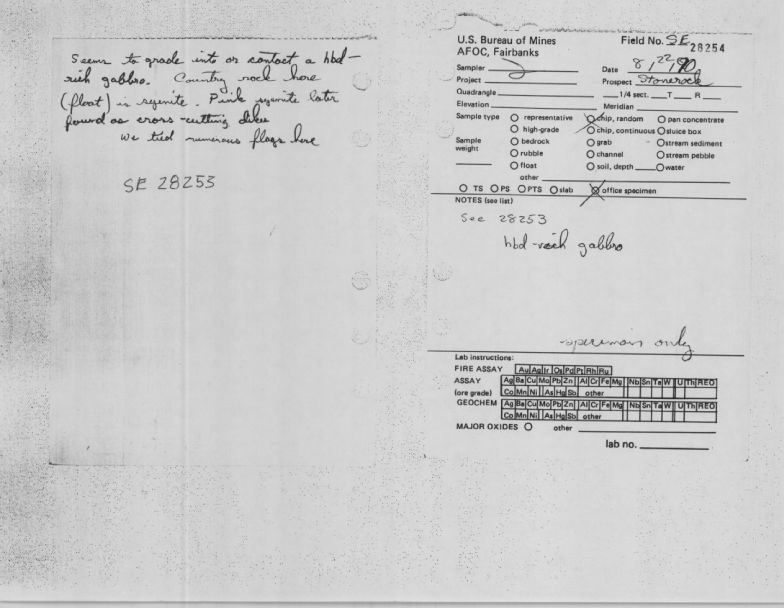 Seems to grade into or contact a hbd-
rich gabbro. Country rock here
(float) is syenite. Pink syenite later
found as cross-cutting dike
We tied numerous flags here
SE 28253
U.S. Bureau of Mines
AFOC, Fairbanks
Field No. SE 28254
Sampler
Date 8/22/90
Project
Prospect Stonerock
Quadrangle
1/4 sect. T R
Elevation
Meridian
Sample type
representative
chip, random
pan concentrate
high-grade
chip, continuous
sluice box
Sample weight
bedrock
grab
stream sediment
rubble
channel
stream pebble
float
soil, depth
water
other
TS PS PTS slab office specimen
NOTES (see list)
See 28253
hbd-rich gabbro
-specimen only
Lab instructions:
FIRE ASSAY Au Ag Ir Os Pd Pt Rh Ru
ASSAY Ag Ba Cu Mo Pb Zn Al Cr Fe Mg Nb Sn Ta W U Th REO
(ore grade) Co Mn Ni As Hg Sb other
GEOCHEM Ag Ba Cu Mo Pb Zn Al Cr Fe Mg Nb Sn Ta W U Th REO
Co Mn Ni As Hg Sb other
MAJOR OXIDES other
lab no.